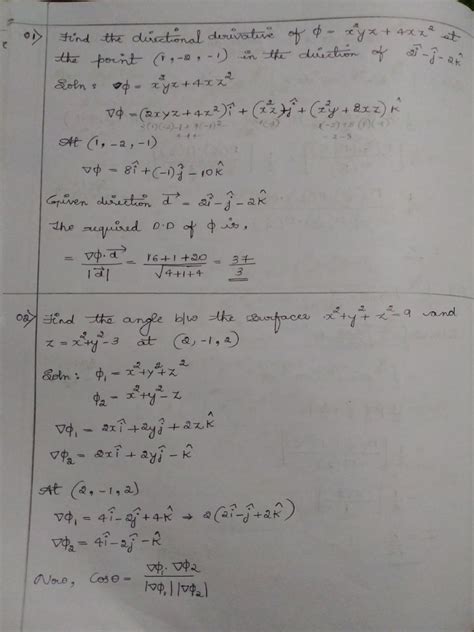 01) Find the directional derivative of φ = x²yz + 4xz² at
the point (1, -2, -1) in the direction of 2î - ĵ - 2k̂
Soln: ∇φ = x²yz + 4xz²
∇φ = (2xyz + 4z²)î + (x²z)ĵ + (x²y + 8xz)k̂
At (1, -2, -1)
∇φ = 8î + (-1)ĵ - 10k̂
Given direction d⃗ = 2î - ĵ - 2k̂
The required D.D of φ is,
= ∇φ·d⃗ / |d⃗| = 16+1+20 / √4+1+4 = 37 / 3
02) Find the angle b/w the surfaces x² + y² + z² - 9 and
z = x² + y² - 3 at (2, -1, 2)
Soln: φ₁ = x² + y² + z²
φ₂ = x² + y² - z
∇φ₁ = 2xî + 2yĵ + 2zk̂
∇φ₂ = 2xî + 2yĵ - k̂
At (2, -1, 2)
∇φ₁ = 4î - 2ĵ + 4k̂ → 2(2î - ĵ + 2k̂)
∇φ₂ = 4î - 2ĵ - k̂
Now, Cosθ = ∇φ₁·∇φ₂ / |∇φ₁||∇φ₂|